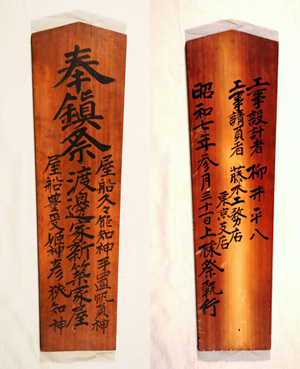 奉鎮祭渡邊家新築家屋
屋船久々能知神手置帆負神
屋船豊受姫神彦狭知神
工事設計者 柳井平八
工事請負者 藤木工務店
東京支店
昭和七年参月三十一日上棟祭執行